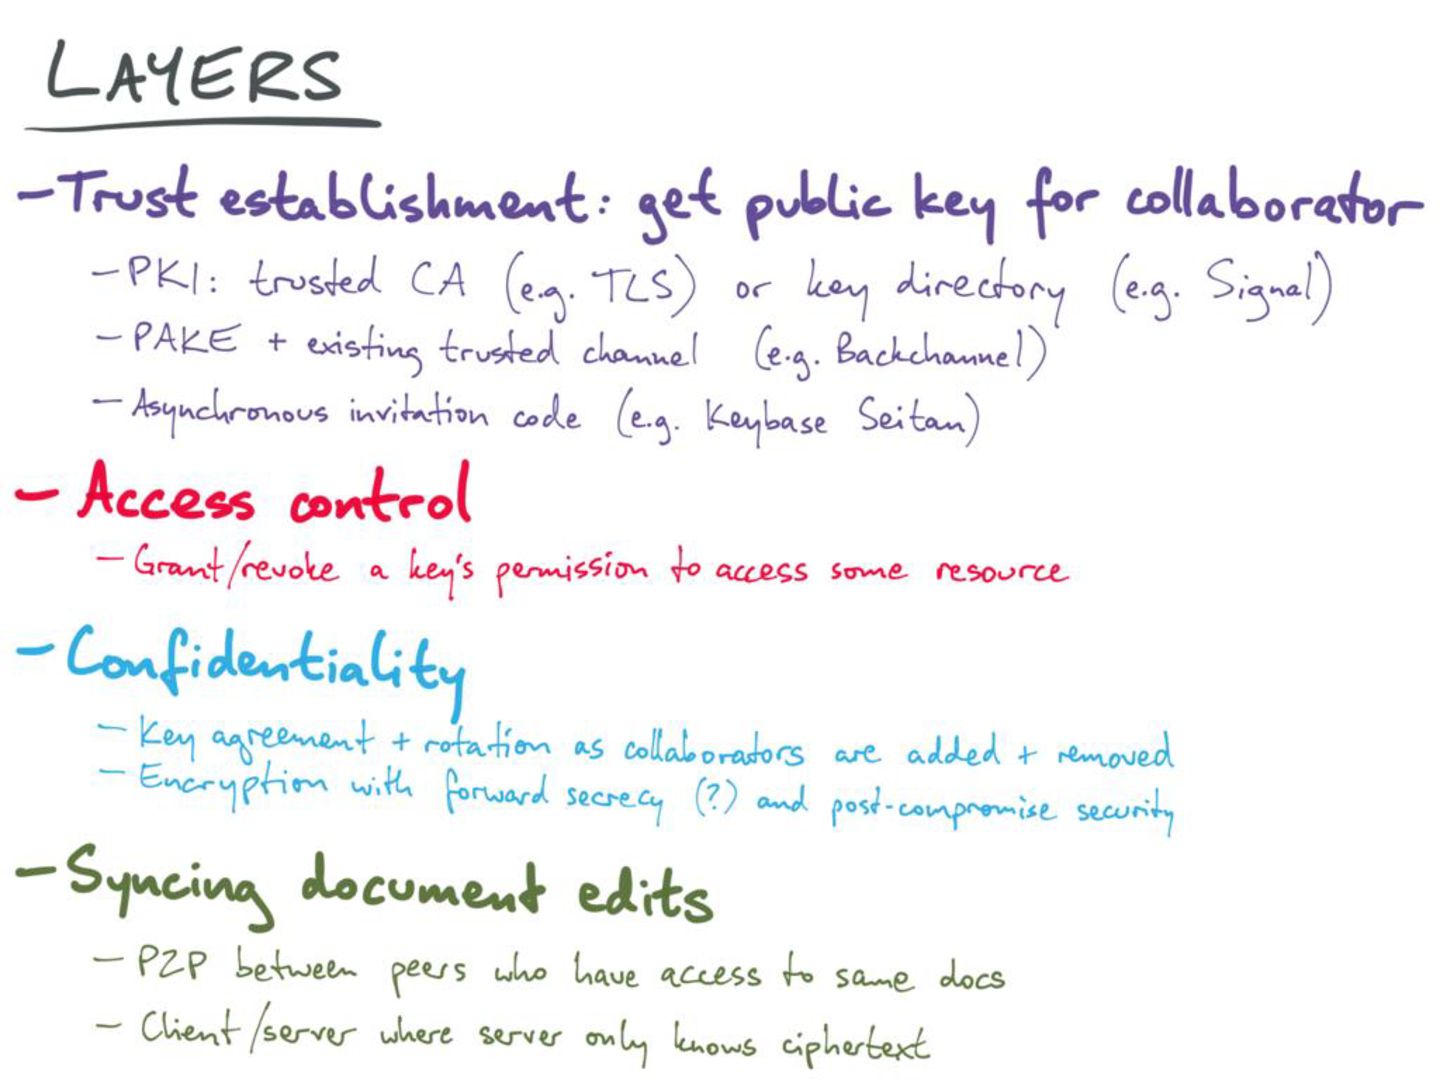 LAYERS
- Trust establishment: get public key for collaborator
- PKI: trusted CA (e.g. TLS) or key directory (e.g. Signal)
- PAKE + existing trusted channel (e.g. Backchannel)
- Asynchronous invitation code (e.g. Keybase Seitan)
- Access control
- Grant/revoke a key's permission to access some resource
- Confidentiality
- Key agreement + rotation as collaborators are added + removed
- Encryption with forward secrecy (?) and post-compromise security
- Syncing document edits
- P2P between peers who have access to same docs
- Client/server where server only knows ciphertext